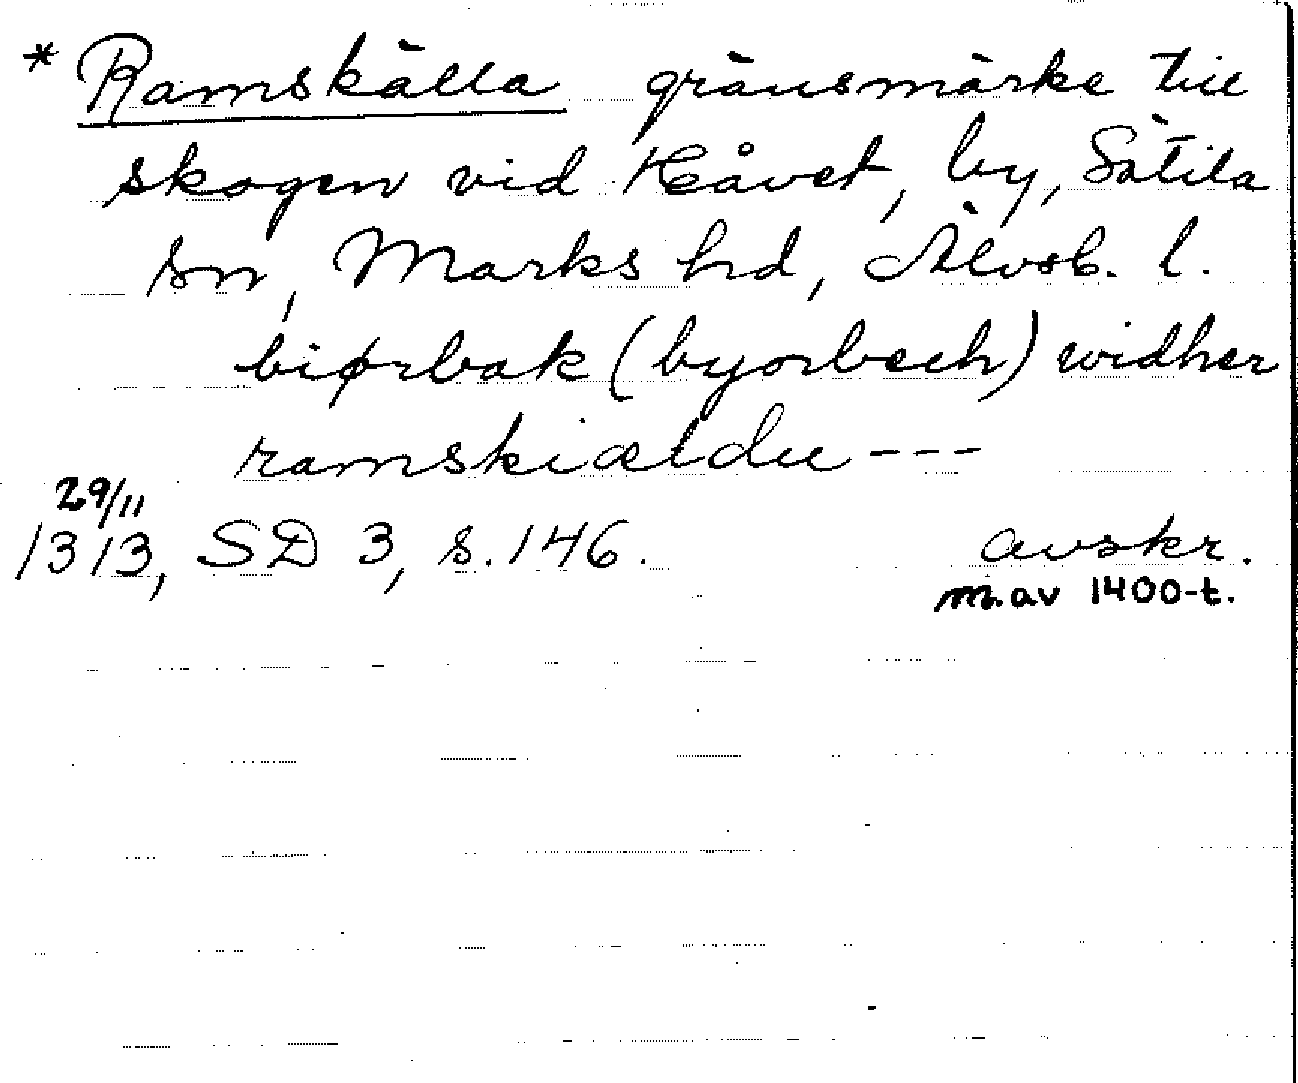 * Ramskälla gränsmärke till
skogen vid Håvet, by, Sätila
sn, Marks hd, Älvsb. l.
biørbak (byorbech) widher
ramskiældu ---
29/11
1313, SD 3, s. 146. avskr.
m. av 1400-t.